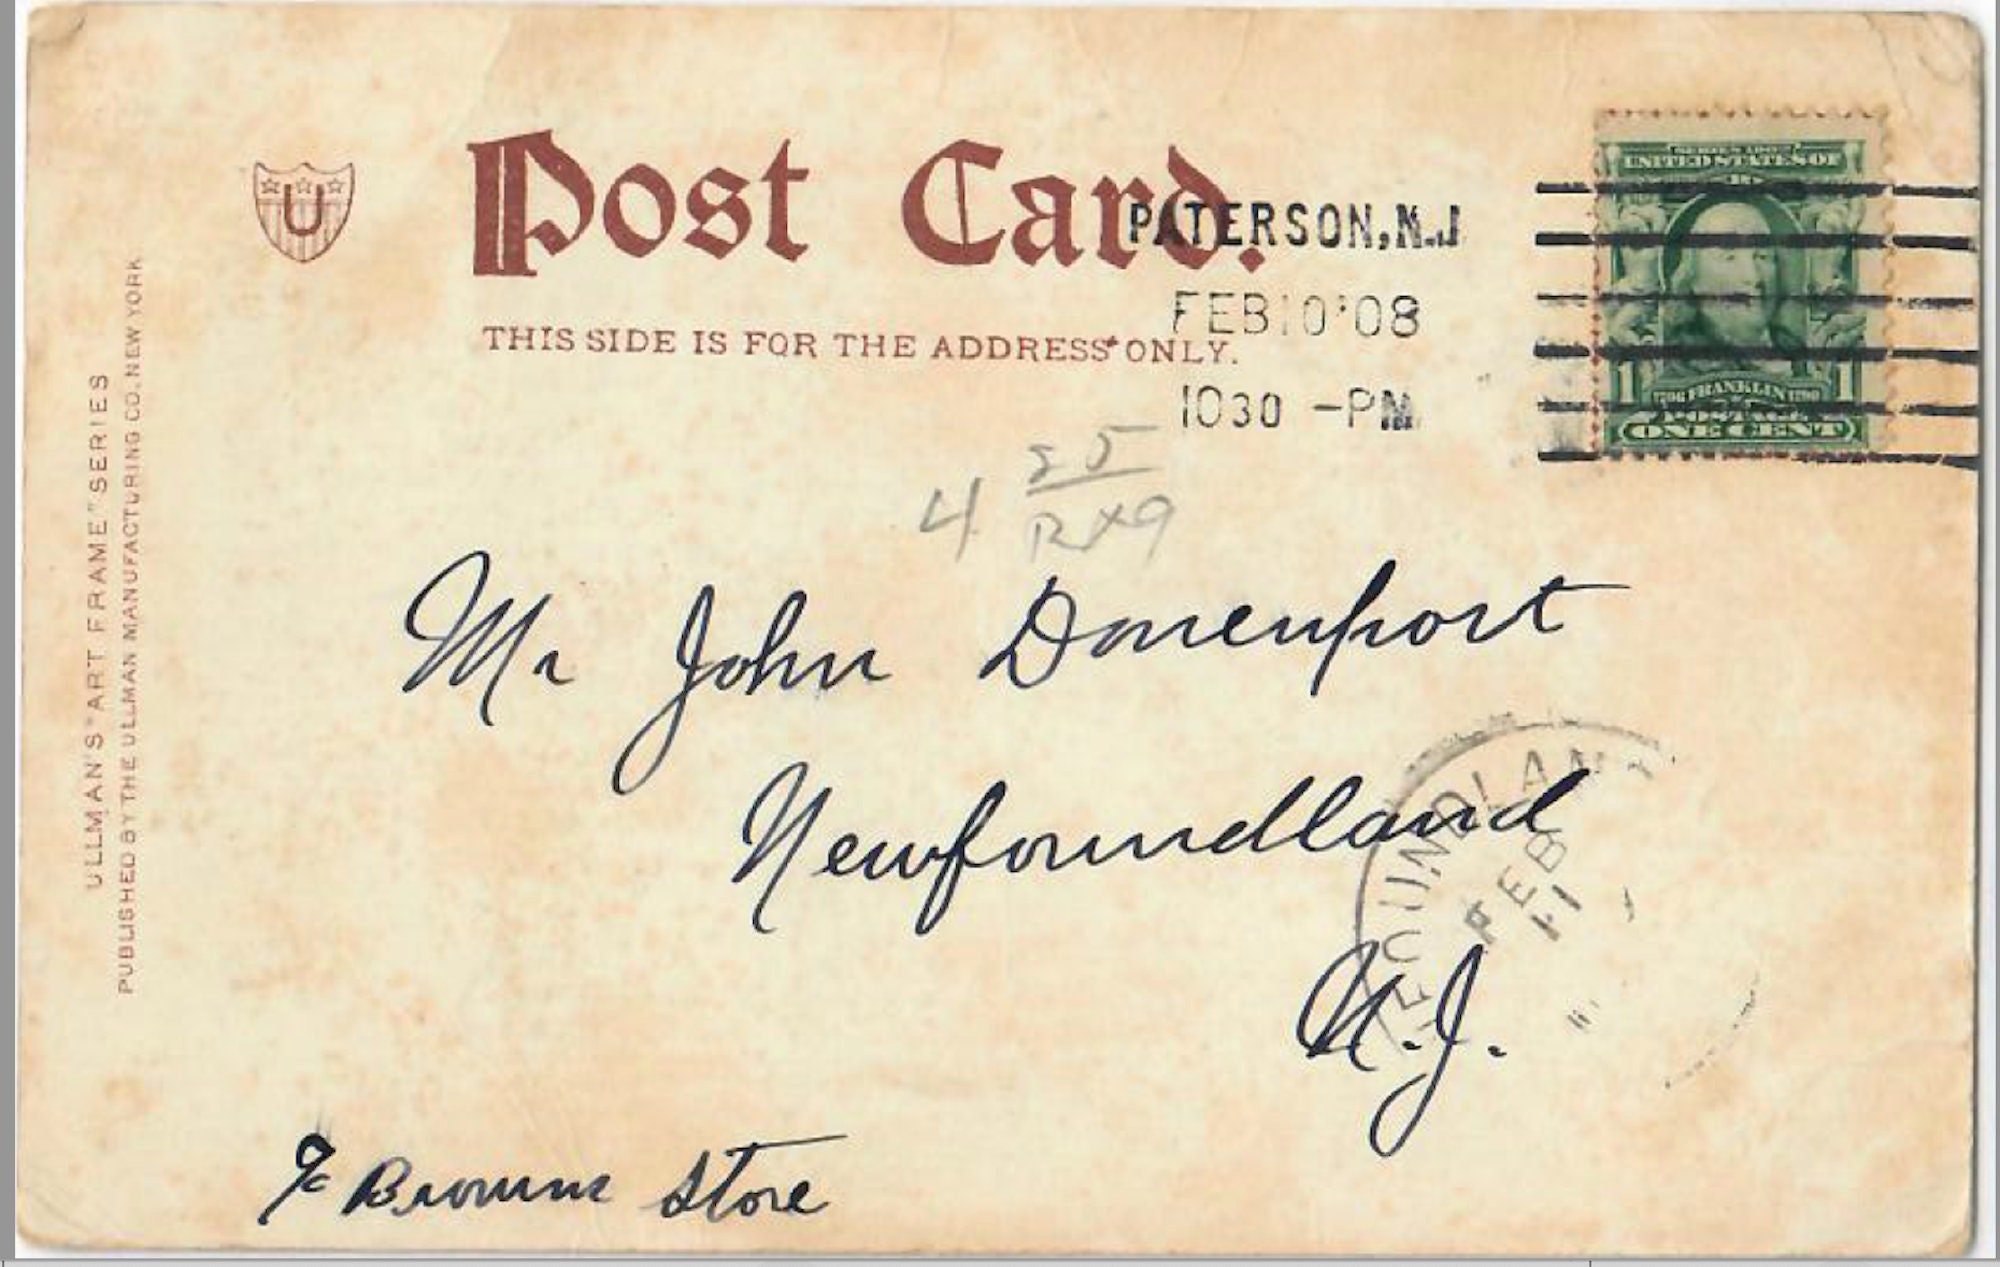 U
Post Card.
THIS SIDE IS FOR THE ADDRESS ONLY.
PATERSON, N.J.
FEB 10 '08
10 30 -PM
SERIES 1902
UNITED STATES OF
1 1706 FRANKLIN 1790 1
POSTAGE
ONE CENT
ULLMAN'S "ART FRAME" SERIES
PUBLISHED BY THE ULLMAN MANUFACTURING CO. NEW YORK
4
Mr John Davenport
Newfoundland
N.J.
FOUNDLAND
FEB
11
c/o Browns Store